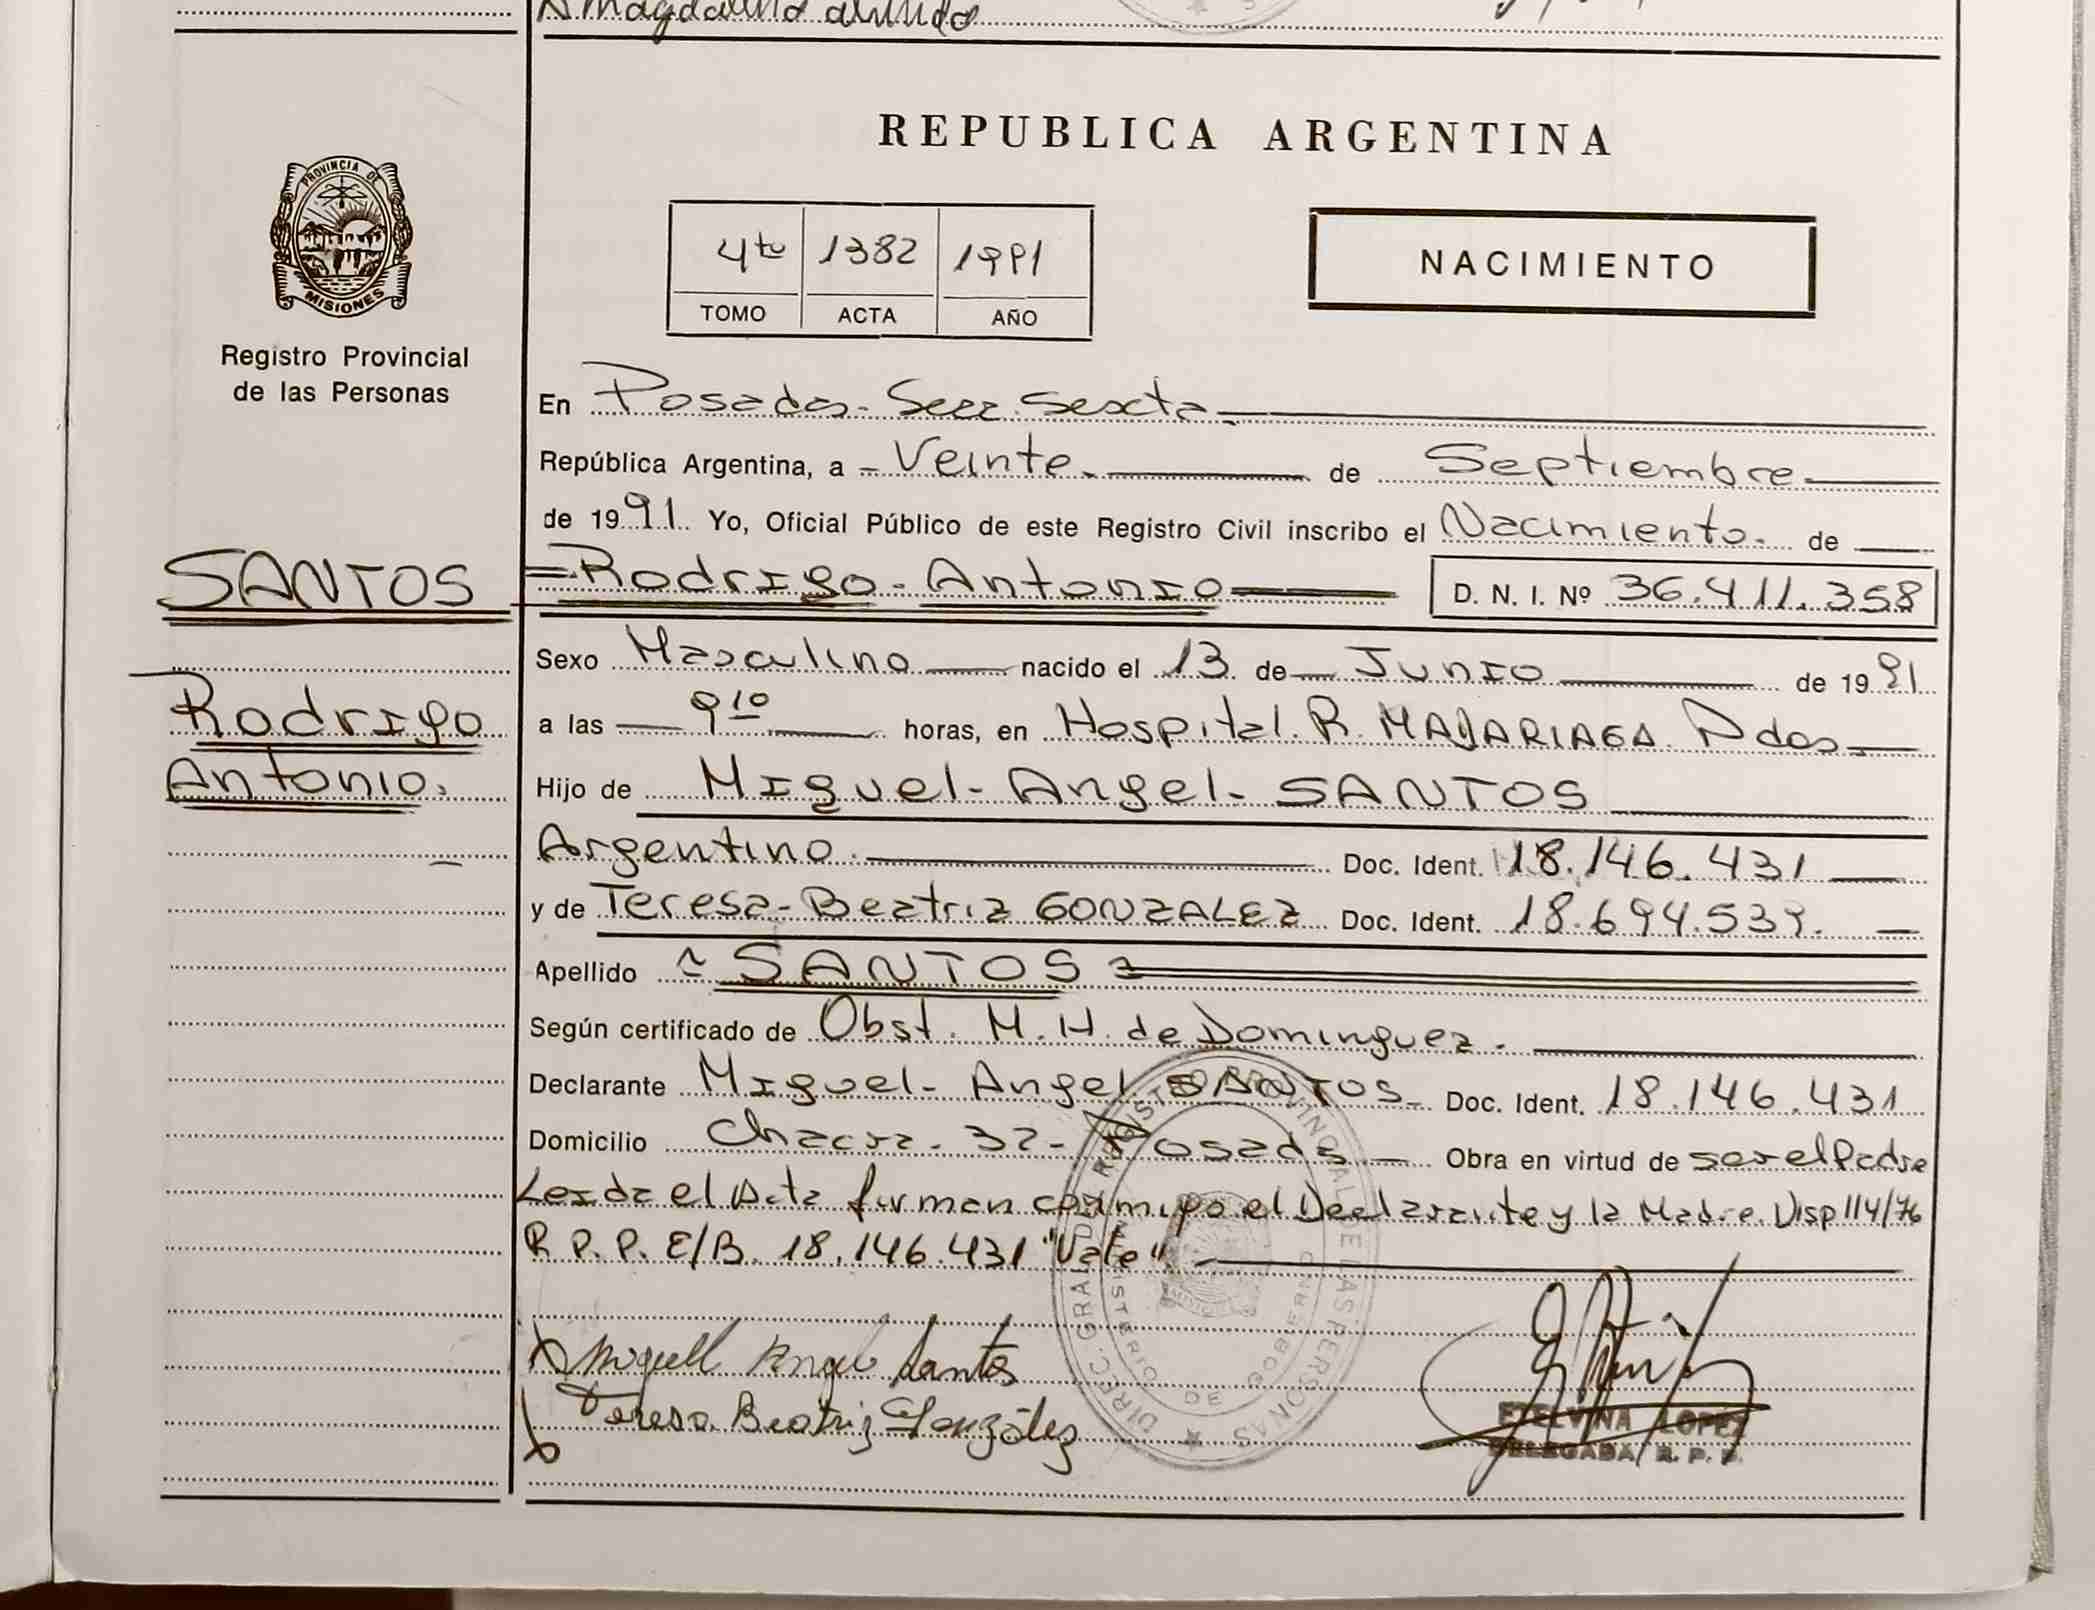 Magdalena
REPUBLICA ARGENTINA
PROVINCIA DE
MISIONES
4to 1382 1991
TOMO ACTA AÑO
NACIMIENTO
Registro Provincial
de las Personas
En Posadas - Secc. Sexta
República Argentina, a Veinte de Septiembre
de 1991. Yo, Oficial Público de este Registro Civil inscribo el Nacimiento de
SANTOS Rodrigo - Antonio D. N. I. Nº 36.411.358
Sexo Masculino nacido el 13 de Junio de 1991
Rodrigo a las 9 10 horas, en Hospital. R. MADARIAGA. Pdas
Antonio. Hijo de Miguel - Angel - SANTOS
Argentino. Doc. Ident. 18.146.431
y de Teresa - Beatriz GONZALEZ Doc. Ident. 18.694.539.
Apellido SANTOS
Según certificado de Obst. M. H. de Dominguez.
Declarante Miguel - Angel SANTOS Doc. Ident. 18.146.431
Domicilio Chacra - 32 - Posadas Obra en virtud de ser el Padre
Leida el Acta firman conmigo el Declarante y la Madre. Disp 114/76
R.P.P. E/B. 18.146.431 "Vale".
DIREC. GRAL. DEL REGISTRO PROVINCIAL DE LAS PERSONAS
MINISTERIO DE GOBIERNO
Miguell Angel Santos
Teresa Beatriz González
ETELVINA LOPEZ
DELEGADA R. P. P.